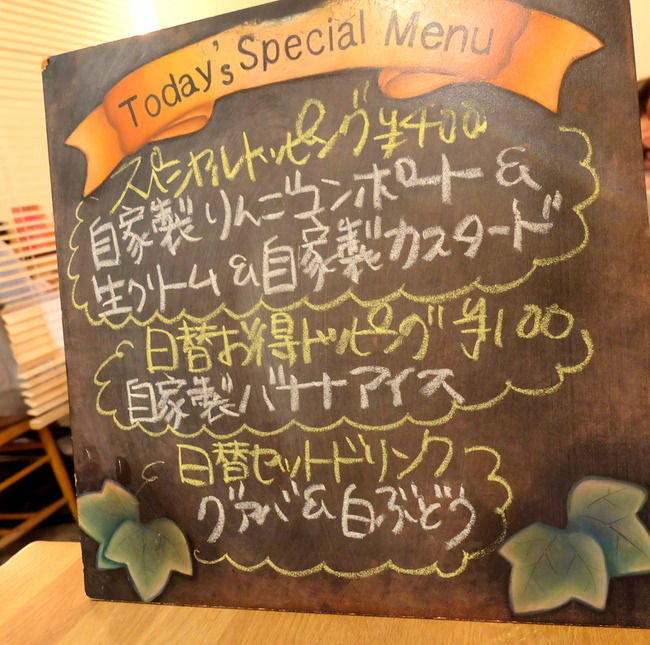 Today's Special Menu
スペシャルトッピング ¥400
自家製りんごコンポート&
生クリーム&自家製カスタード
日替お得トッピング ¥100
自家製バナナアイス
日替セットドリンク
グァバ&白ぶどう